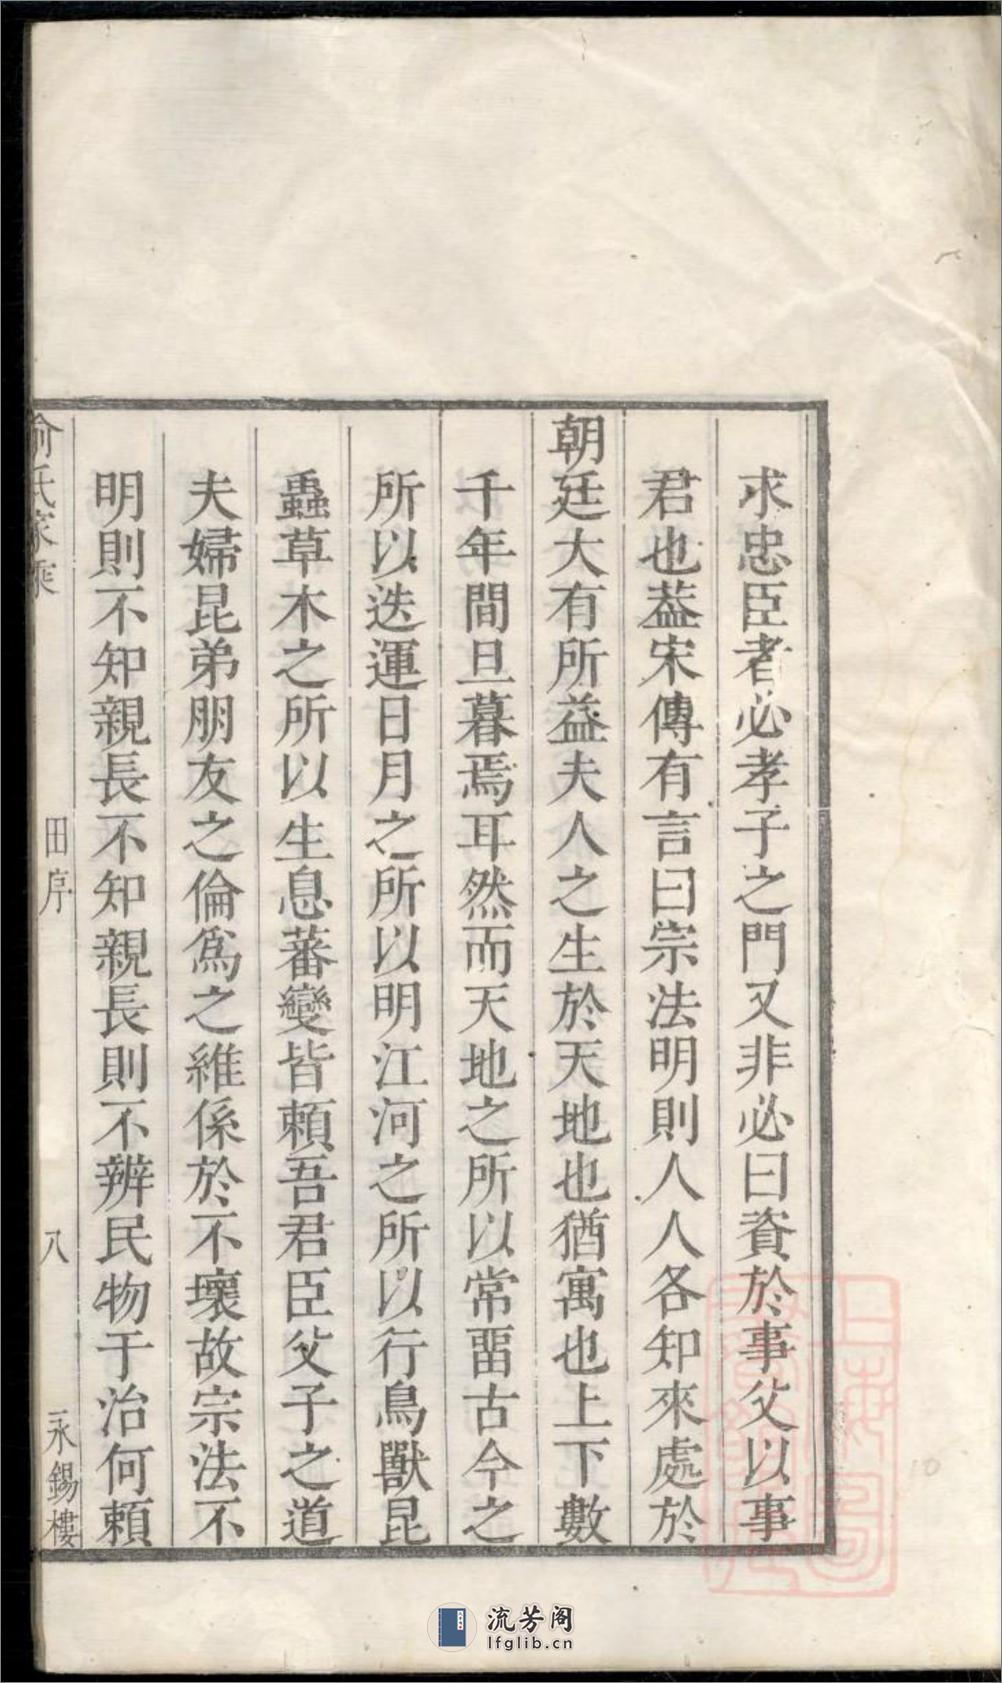 求忠臣者必孝子之門又非必曰資於事父以事
君也葢宋傳有言曰宗法明則人人各知來處於
朝廷大有所益夫人之生於天地也猶寓也上下數
千年間旦暮焉耳然而天地之所以常畱古今之
所以迭運日月之所以明江河之所以行鳥獸昆
蟲草木之所以生息蕃變皆頼吾君臣父子之道
夫婦昆弟朋友之倫爲之維係於不壞故宗法不
明則不知親長不知親長則不辨民物于治何頼
俞氏家乘
田序
八
永錫樓
流芳阁
lfglib.cn
10